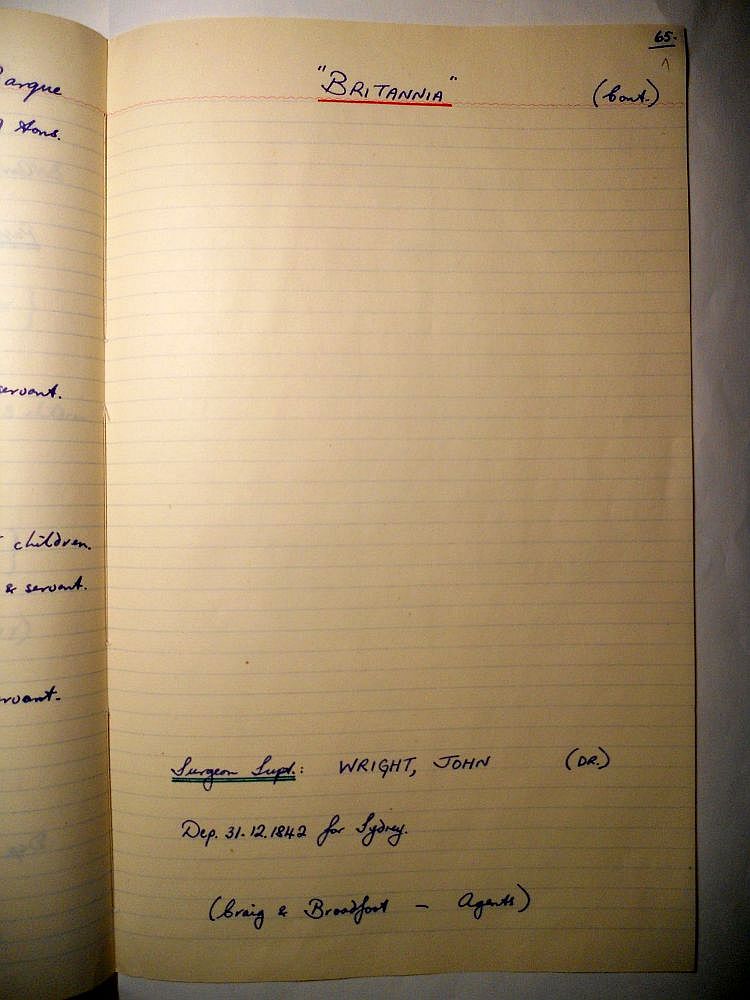 65.
"BRITANNIA" (Cont.)
arque
Tons.
servant.
children.
& servant.
rvant.
Surgeon Supt.: WRIGHT, JOHN (DR.)
Dep. 31.12.1842 for Sydney.
(Craig & Broadfoot - Agents)